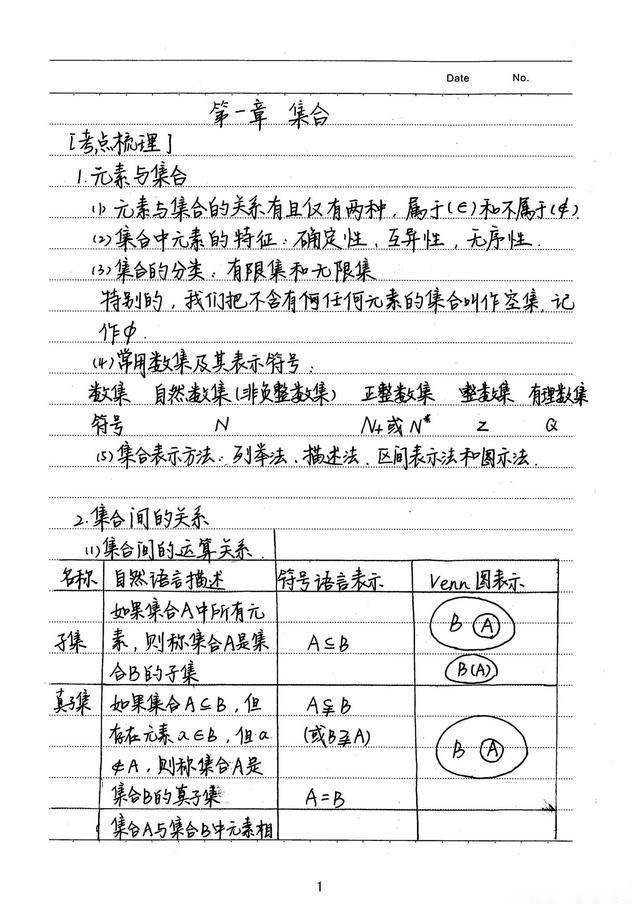 Date No.
第一章 集合
[考点梳理]
1.元素与集合
(1) 元素与集合的关系有且仅有两种，属于(∈)和不属于(∉)
(2)集合中元素的特征：确定性、互异性，无序性.
(3)集合的分类：有限集和无限集
特别的，我们把不含有何任何元素的集合叫作空集，记
作∅.
(4)常用数集及其表示符号：
数集 自然数集(非负整数集) 正整数集 整数集 有理数集
符号 N N+或N* Z Q
(5)集合表示方法：列举法、描述法、区间表示法和图示法.
2.集合间的关系
(1)集合间的运算关系.
名称 自然语言描述 符号语言表示 Venn图表示
如果集合A中所有元
素，则称集合A是集
合B的子集
子集
A⊆B
B A
B(A)
真子集 如果集合A⊆B，但
存在元素a∈B，但a
∉A，则称集合A是
集合B的真子集
A⫋B
(或B⫌A)
B A
A=B
集合A与集合B中元素相
1